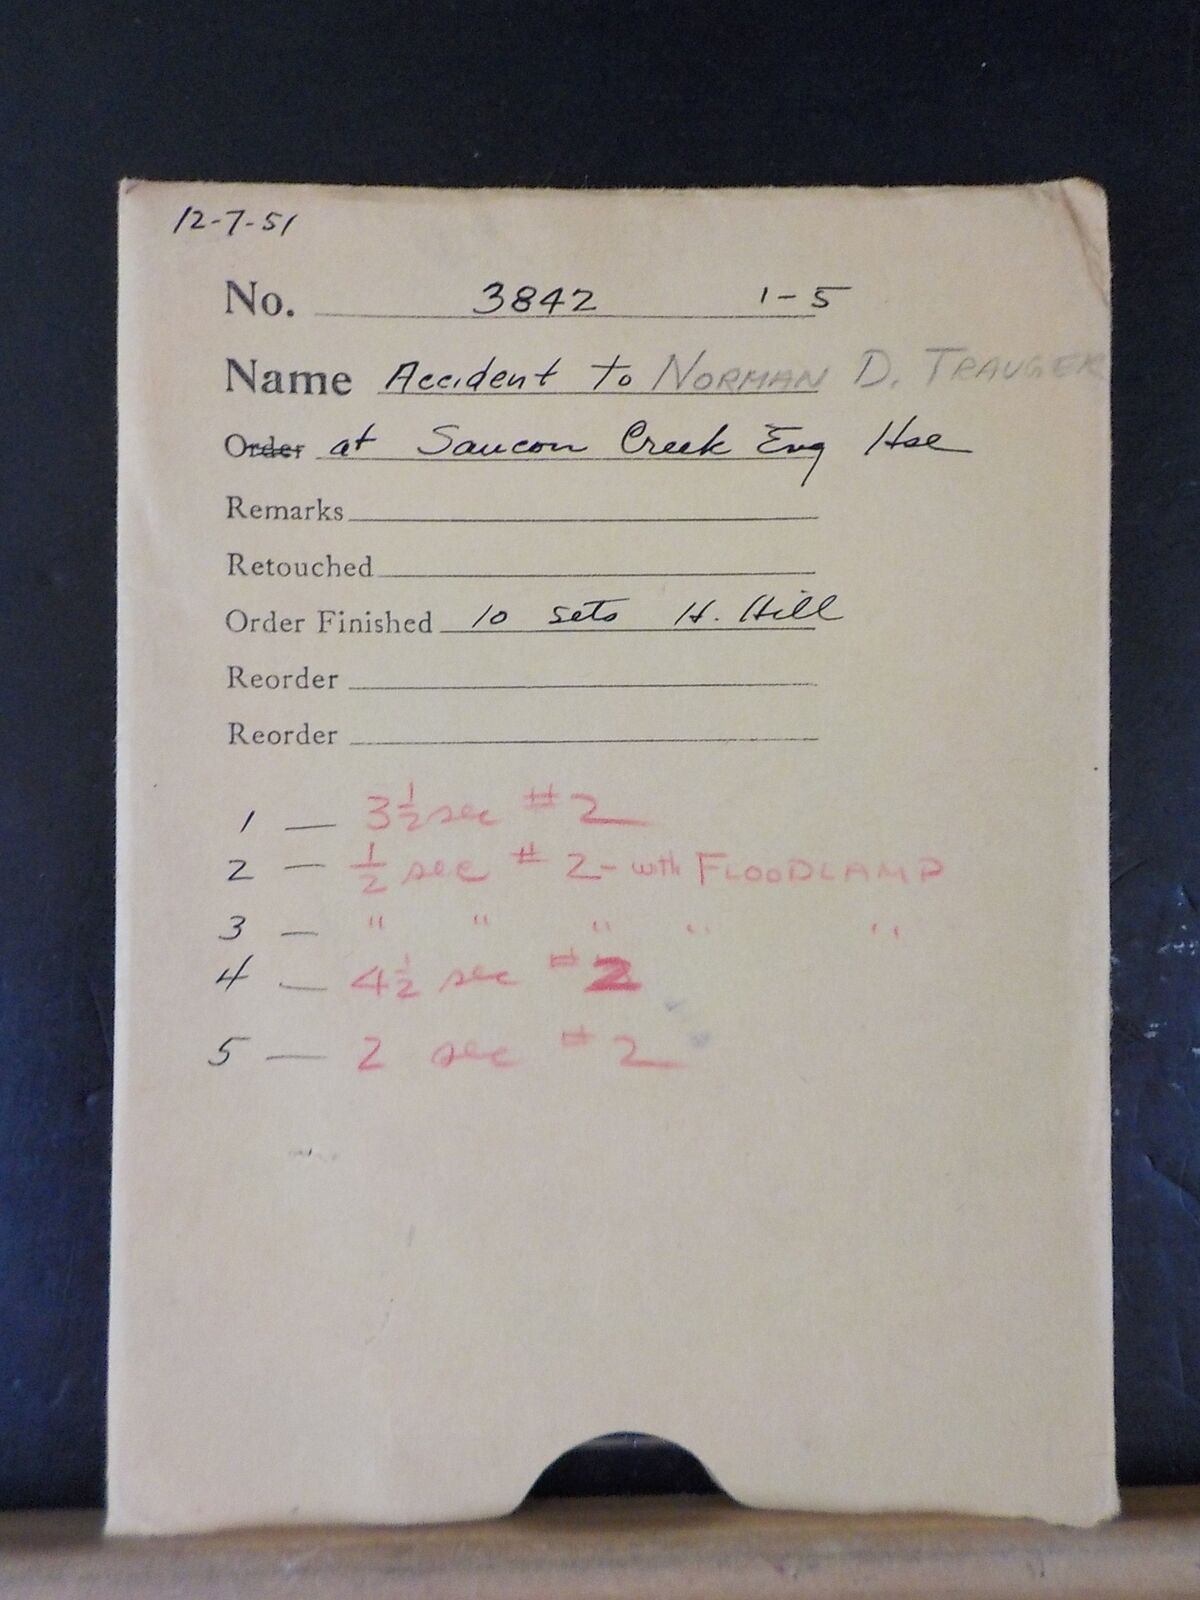 12-7-51
No. 3842 1-5
Name Accident to NORMAN D. TRAUGER
Order at Saucon Creek Eng Hse
Remarks
Retouched
Order Finished 10 sets H. Hill
Reorder
Reorder
1 — 3 1/2 sec # 2
2 — 1/2 sec # 2 - with FLOODLAMP
3 — " " " " "
4 — 4 1/2 sec # 2
5 — 2 sec # 2